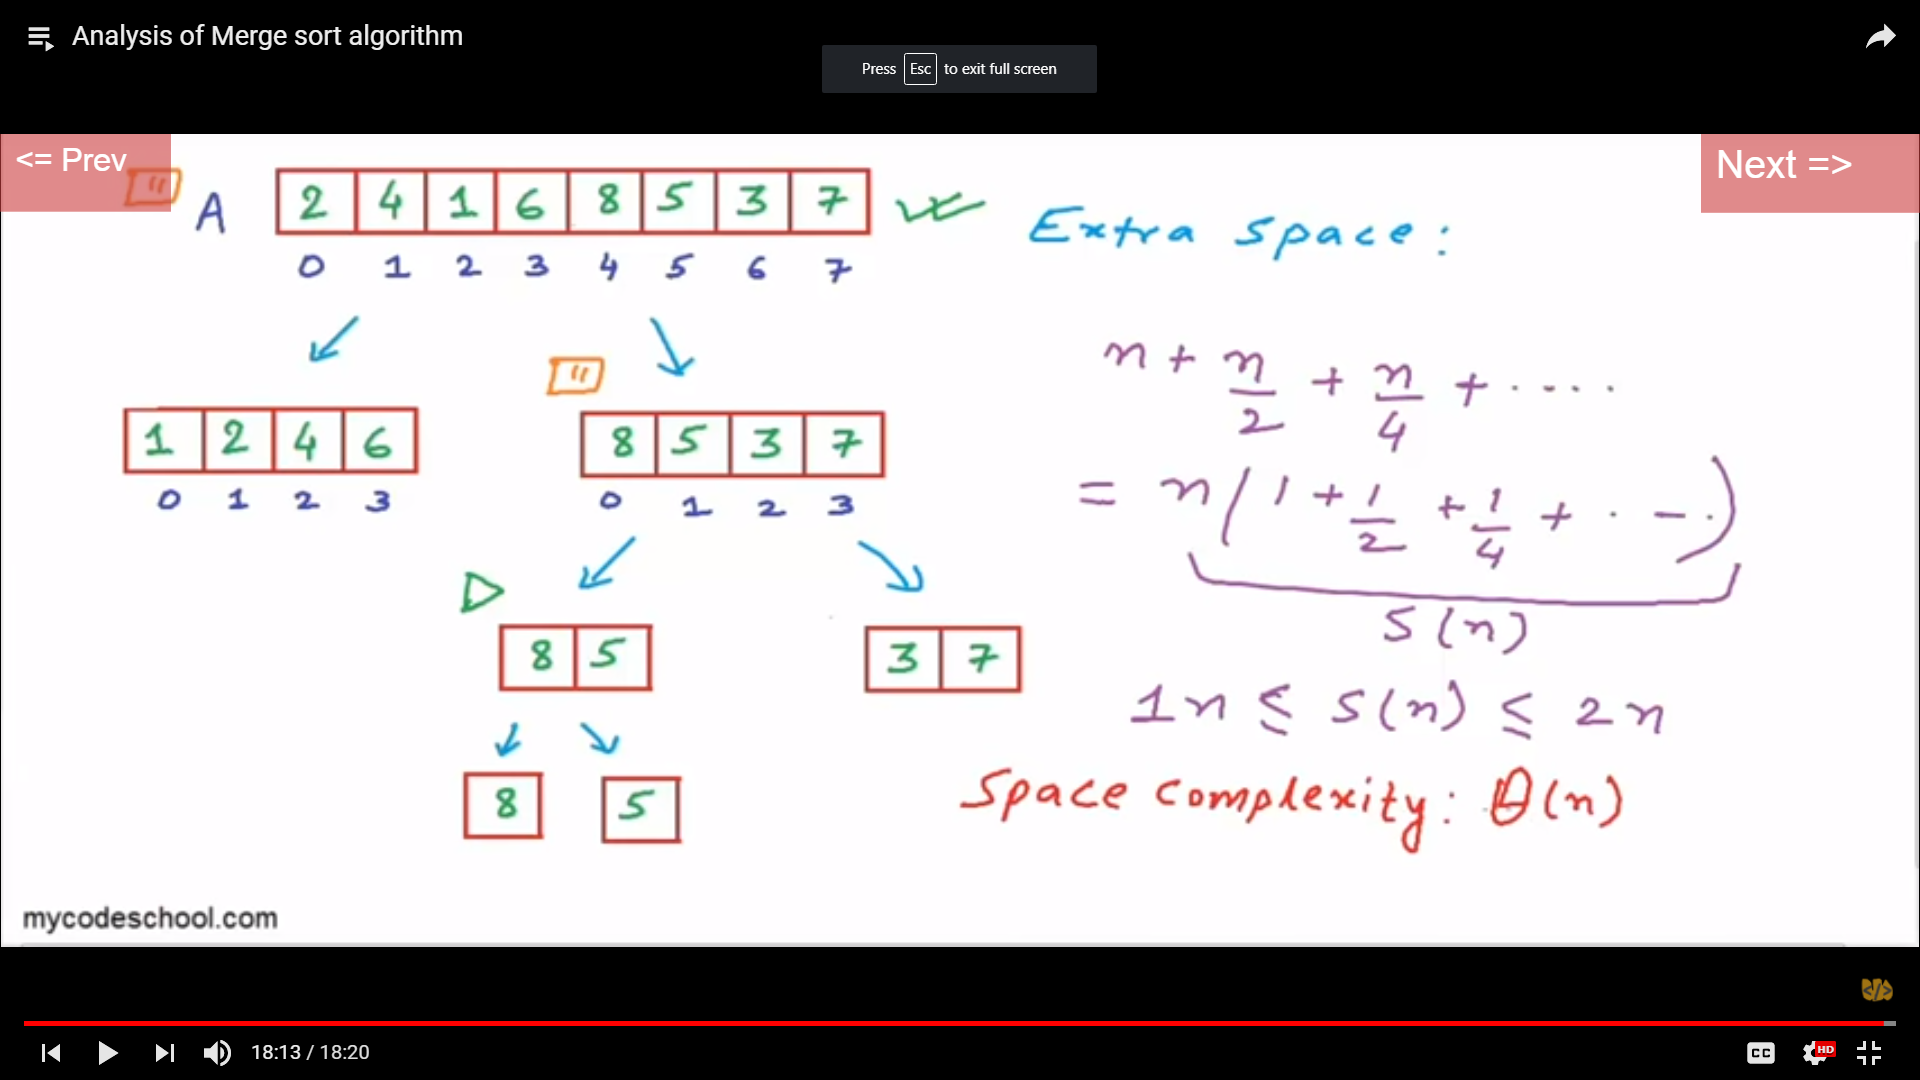 Analysis of Merge sort algorithm
Press Esc to exit full screen
<= Prev
Next =>
A 2 4 1 6 8 5 3 7
0 1 2 3 4 5 6 7
Extra space:
n + n/2 + n/4 + ....
1 2 4 6
0 1 2 3
8 5 3 7
0 1 2 3
= n(1 + 1/2 + 1/4 + . - .)
S(n)
8 5
3 7
1n ≤ S(n) ≤ 2n
8
5
Space complexity: Θ(n)
mycodeschool.com
18:13 / 18:20
CC
HD